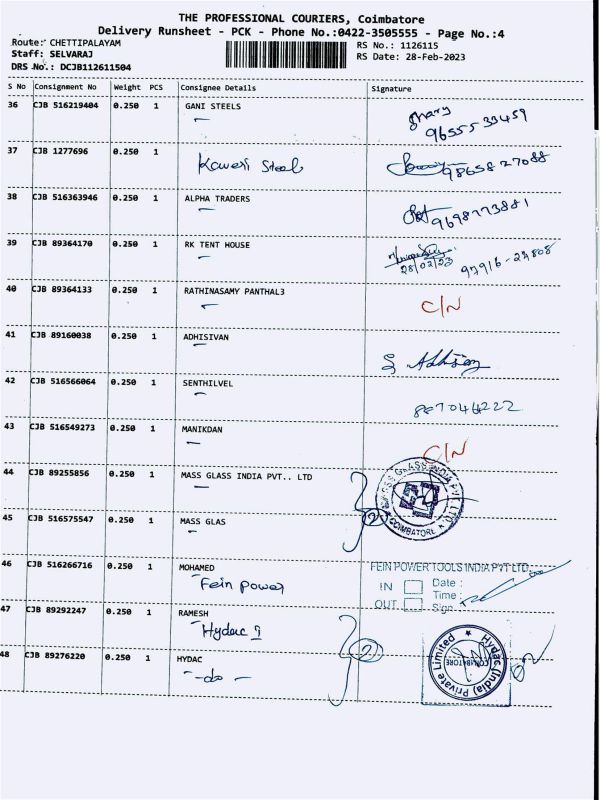 THE PROFESSIONAL COURIERS, Coimbatore
Delivery Runsheet - PCK - Phone No.:0422-3505555 - Page No.:4
Route: CHETTIPALAYAM RS No.: 1126115
Staff: SELVARAJ RS Date: 28-Feb-2023
DRS No.: DCJB112611504
S No Consignment No Weight PCS Consignee Details Signature
36 CJB 516219404 0.250 1 GANI STEELS
9655533459
37 CJB 1277696 0.250 1 Kaveri Steel 9865827088
38 CJB 516363946 0.250 1 ALPHA TRADERS 9698773881
39 CJB 89364170 0.250 1 RK TENT HOUSE
28/02/23 97916-27808
40 CJB 89364133 0.250 1 RATHINASAMY PANTHAL3 C/N
41 CJB 89160038 0.250 1 ADHISIVAN
42 CJB 516566064 0.250 1 SENTHILVEL
887044222
43 CJB 516549273 0.250 1 MANIKDAN C/N
44 CJB 89255856 0.250 1 MASS GLASS INDIA PVT.. LTD MASS GLASS INDIA PVT. LTD. COIMBATORE
45 CJB 516575547 0.250 1 MASS GLAS 2
46 CJB 516266716 0.250 1 MOHAMED FEIN POWER TOOLS INDIA PVT LTD.
Fein power IN Date :
Time :
OUT Sign
47 CJB 89292247 0.250 1 RAMESH
Hydac
48 CJB 89276220 0.250 1 HYDAC 2 Hydac (India) Private Limited COIMBATORE
- do -